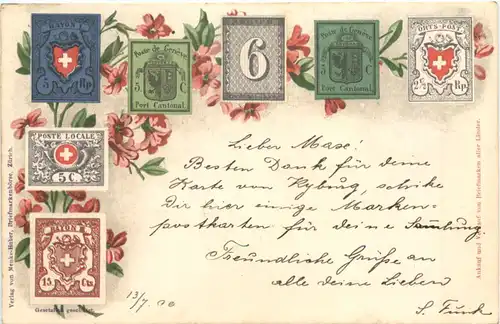 RAYON I
5 Rp
Poste de Genève
5 C
Port Cantonal
6
Poste de Genève
5 C
Port Cantonal
ORTS-POST
2½ Rp
POSTE LOCALE
5 C
RAYON
15 Cts
Gesetzlich geschützt.
Verlag von Menke-Huber, Briefmarkenbörse, Zürich.
Ankauf und Verkauf von Briefmarken aller Länder.
Lieber Max!
Besten Dank für deine
Karte von Kyburg, schike
Dir hier einige Marken-
postkarten für deine Samlung
Freundliche Grüße an
alle deine Lieben
13/7. 00
S. Funk